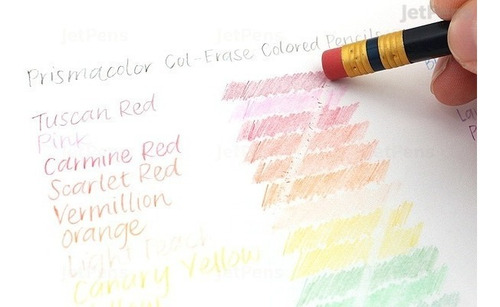 JetPens
Prismacolor Col-Erase Colored Pencils
Tuscan Red
Pink
Carmine Red
Scarlet Red
Vermillion
Orange
Light Peach
Canary Yellow
Yellow